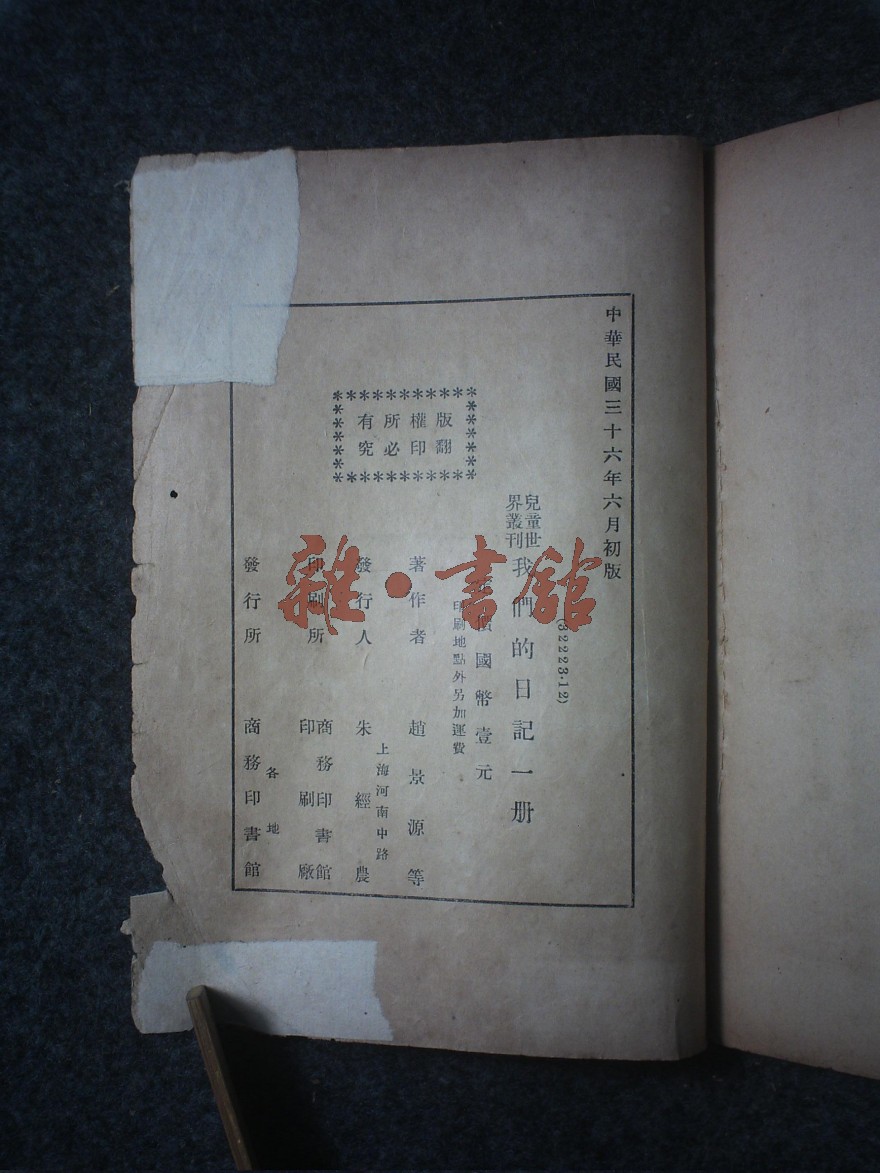 中華民國三十六年六月初版
(32223·12)
兒童世
界叢刊
我們的日記一册
價國幣壹元
印刷地點外另加運費
版權所有
翻印必究
著作者 趙景源等
上海河南中路
發行人 朱經農
印刷所 商務印書館
印刷廠
各地
發行所 商務印書館
雜·書館